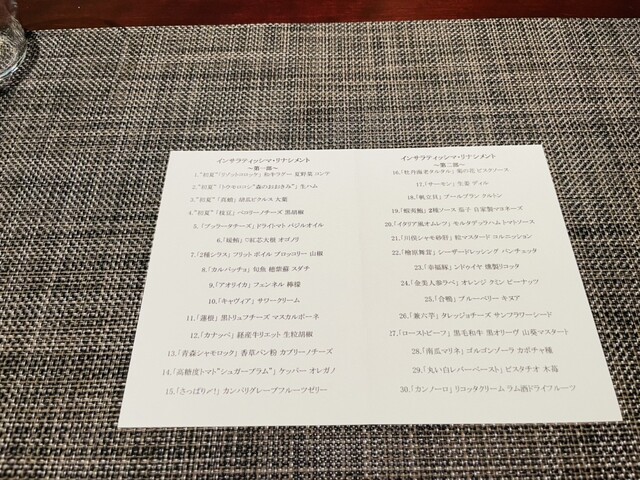 インサラティッシマ・リナシメント
～第一部～
1.“初夏”「リゾットロロック」 キタアカリ 夏野菜 コンテ
2.“初夏”「トウモロコシ“森のおおきみ”」 生ハム
3.“初夏”「真蛸」 胡瓜ピクルス 大葉
4.“初夏”「枝豆」 ペコリーノチーズ 黒胡椒
5.「ブッラータチーズ」 ドライトマト バジルオイル
6.「桜鯛」 紅芯大根 オゴノリ
7.「2種シラス」 フリット ボイル ブロッコリー 山椒
8.「カルパッチョ」 旬魚 穂紫蘇 スダチ
9.「アオリイカ」 フェンネル 檸檬
10.「キャヴィア」 サワークリーム
11.「蓮根」 黒トリュフチーズ マスカルポーネ
12.「カナッペ」 経産牛リエット 生粒胡椒
13.「青森シャモロック」 香草パン粉 カプリーノチーズ
14.「高糖度トマト“シュガープラム”」 ケッパー オレガノ
15.「さっぱり〆!」 カンパリグレープフルーツゼリー
インサラティッシマ・リナシメント
～第二部～
16.「牡丹海老タルタル」 菊の花 ビスクソース
17.「サーモン」 生姜 ディル
18.「帆立貝」 ブールブラン クルトン
19.「蝦夷鮑」 2種ソース 茄子 自家製マヨネーズ
20.「イタリア風オムレツ」 モルタデッラハム トマトソース
21.「川俣シャモ砂肝」 粒マスタード コルニッション
22.「檜原舞茸」 シーザードレッシング パンチェッタ
23.「幸福豚」 ンドゥイヤ 燻製リコッタ
24.「金美人参ラペ」 オレンジ クミン ピーナッツ
25.「合鴨」 ブルーベリー キヌア
26.「兼六芋」 タレッジョチーズ サンフラワーシード
27.「ローストビーフ」 黒毛和牛 黒オリーヴ 山葵マスタード
28.「南瓜マリネ」 ゴルゴンゾーラ カボチャ種
29.「丸い白レバーペースト」 ピスタチオ 木苺
30.「カンノーロ」 リコッタクリーム ラム酒ドライフルーツ